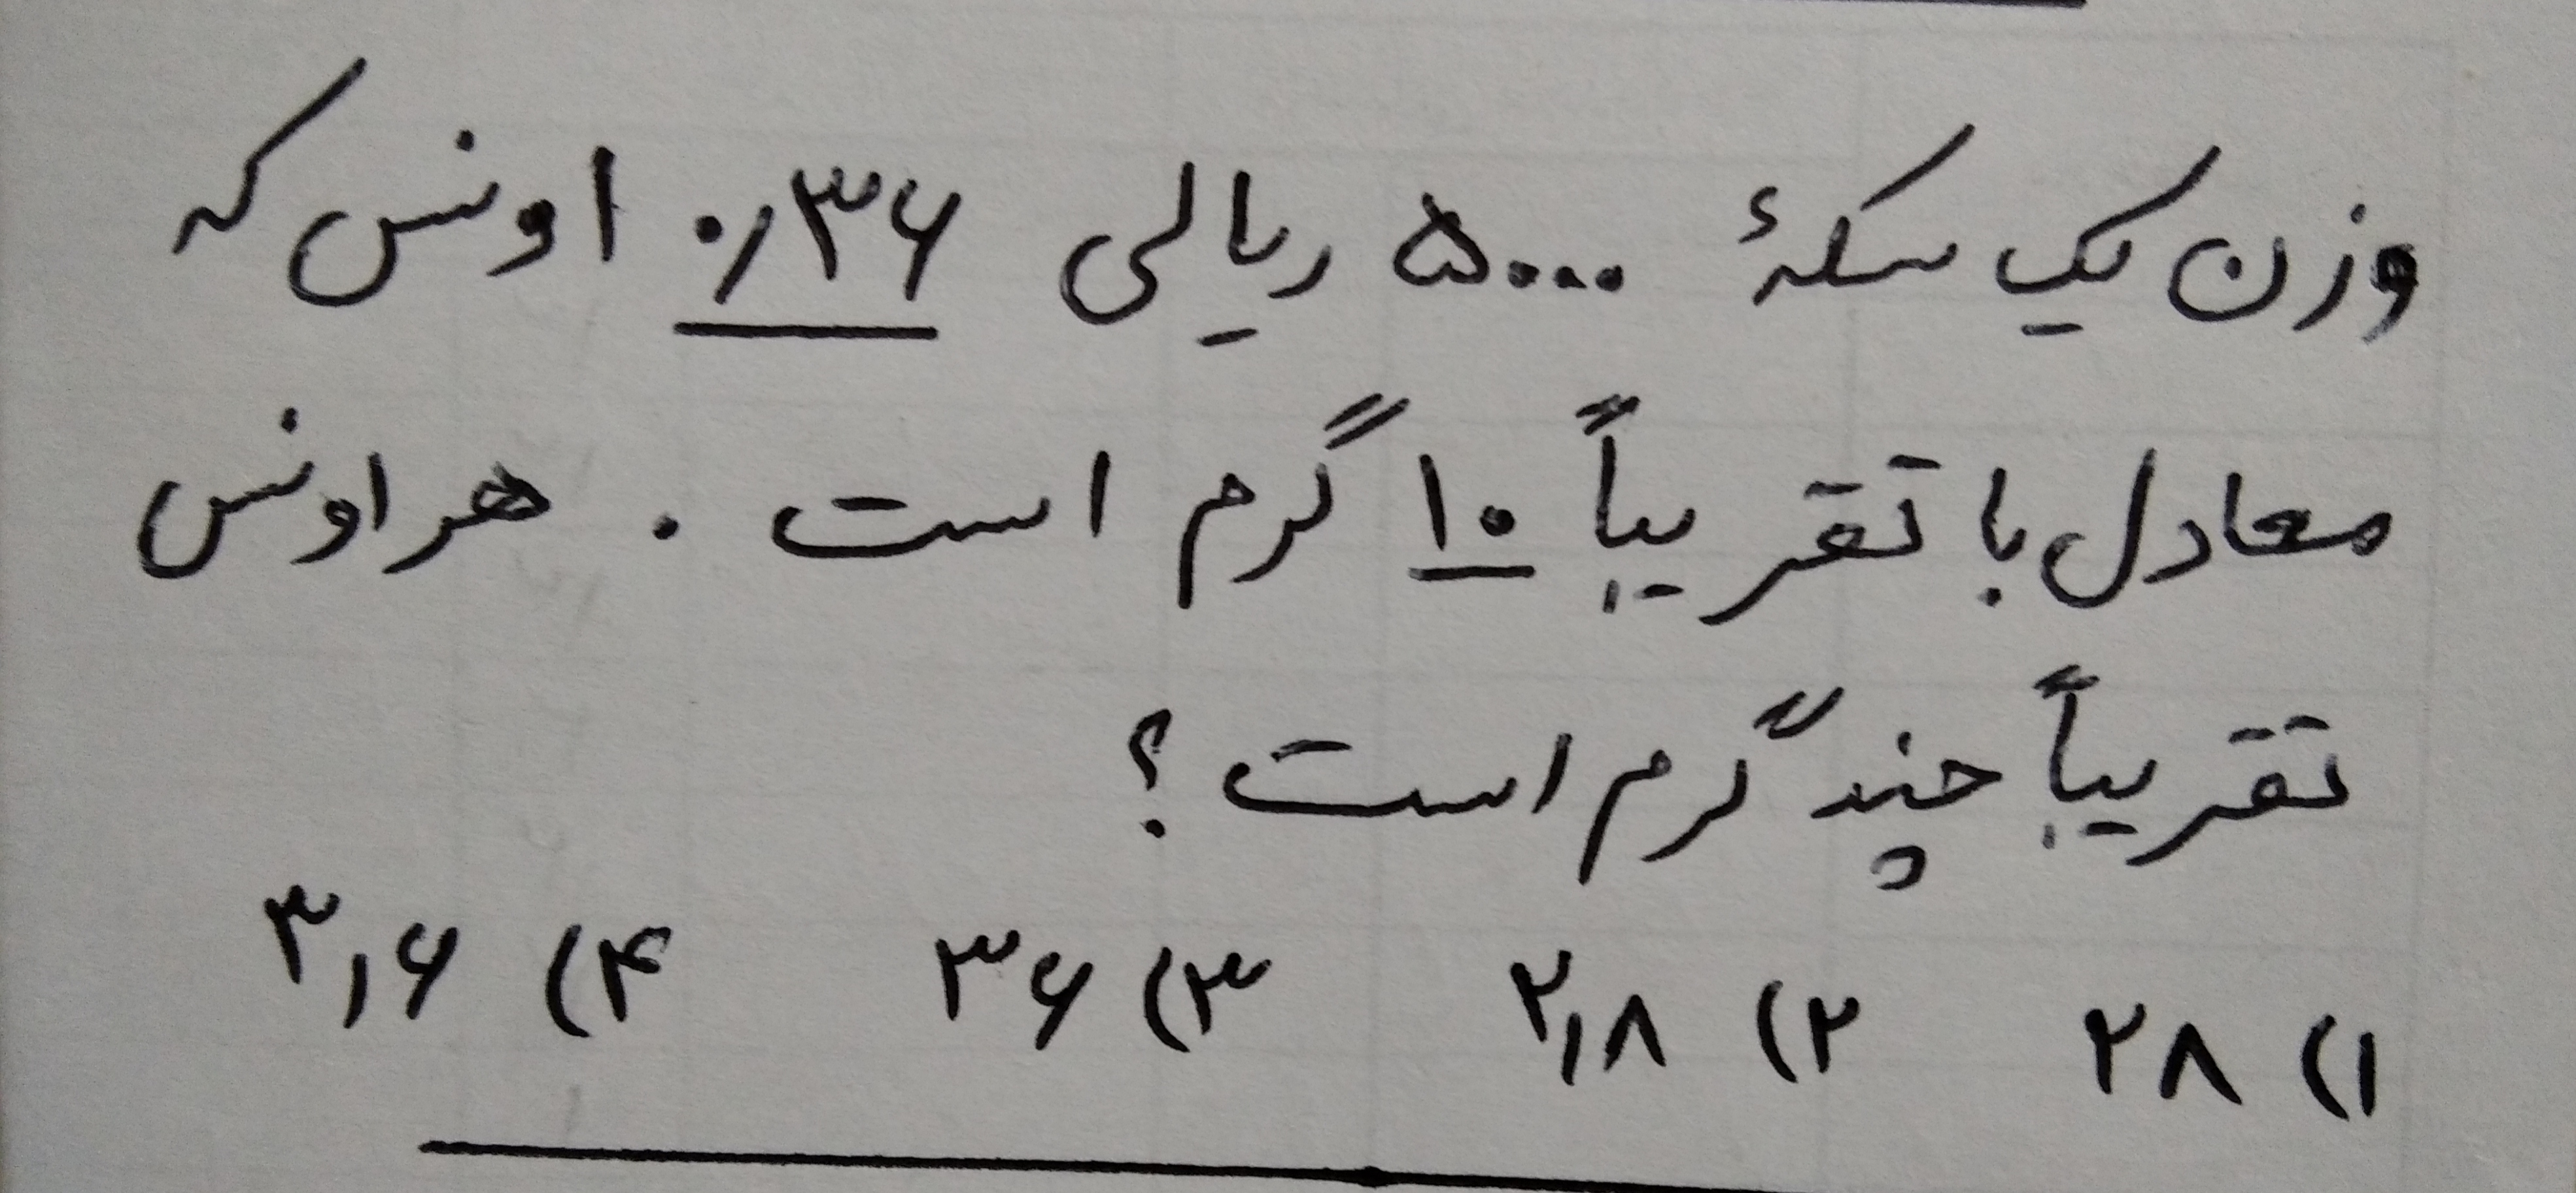 وزن یک سکهٔ ۵۰۰۰ ریالی ۰٫۳۶ اونس که
معادل با تقریباً ۱۰ گرم است . هر اونس
تقریباً چند گرم است ؟
۱) ۲۸ ۲) ۲٫۸ ۳) ۳۶ ۴) ۳٫۶